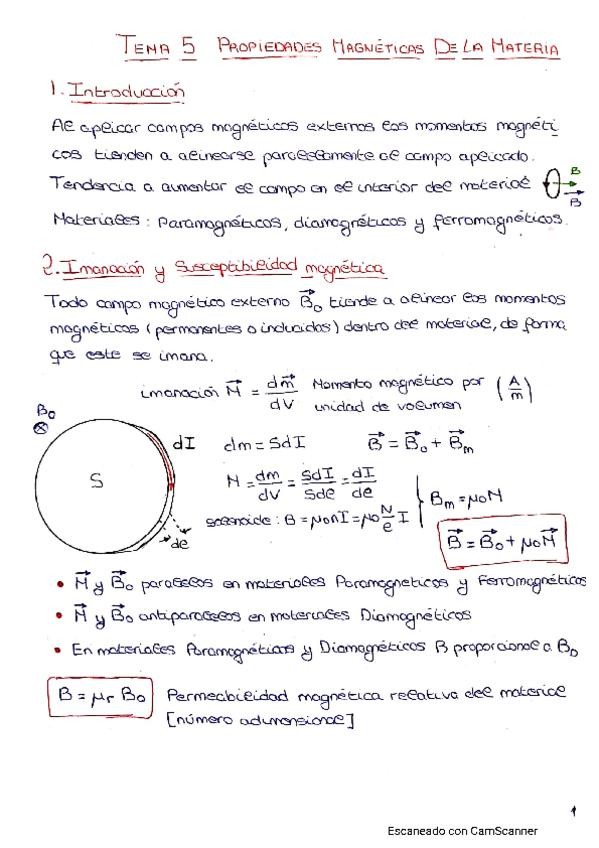 TEMA 5 PROPIEDADES MAGNÉTICAS DE LA MATERIA
1. Introducción
Al aplicar campos magnéticos externos los momentos magnéti
cos tienden a alinearse paralelamente al campo aplicado.
Tendencia a aumentar el campo en el interior del material
B
B
Materiales: Paramagnéticos, diamagnéticos y ferromagnéticos.
2. Imanación y Susceptibilidad magnética
Todo campo magnético externo B⃗₀ tiende a alinear los momentos
magnéticos (permanentes o inducidos) dentro del material, de forma
que este se imana.
imanación M⃗ = dm⃗/dV Momento magnético por unidad de volumen (A/m)
B₀
S
dI
dl
dm = SdI B⃗ = B⃗₀ + B⃗m
M = dm/dV = SdI/Sdl = dI/dl
solenoide: B = μ₀nI = μ₀ N/l I
Bm = μ₀M
B⃗ = B⃗₀ + μ₀M⃗
• M⃗ y B⃗₀ paralelos en materiales Paramagneticos y Ferromagnéticos
• M⃗ y B⃗₀ antiparalelos en materiales Diamagnéticos
• En materiales Paramagnéticos y Diamagnéticos B proporcional a B₀
B = μr B₀ Permeabilidad magnética relativa del material
[número adimensional]
1
Escaneado con CamScanner